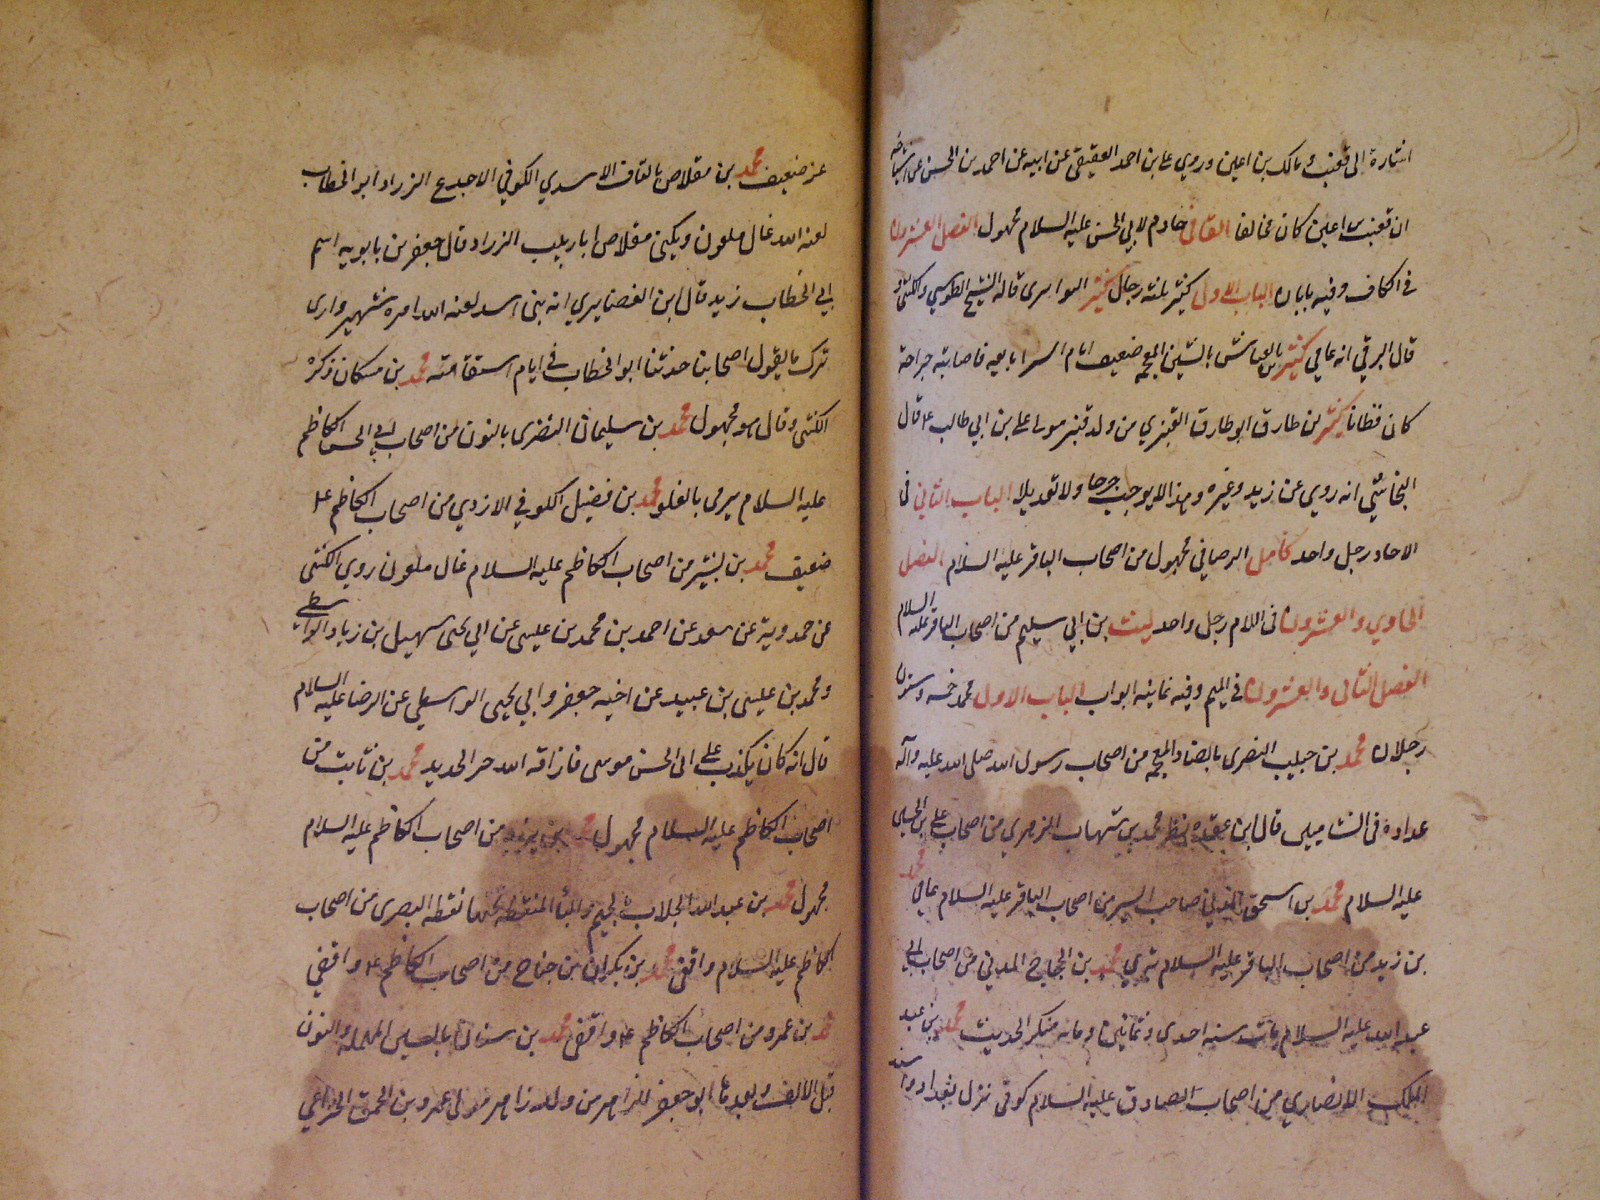 اشارة الى قعنب و مالك بن اعين و روي على بن احمد العقيقى عن ابيه عن احمد بن الحسن عن اشياخه
ان قعنب بن اعين كان مخالفا القانى خادم لابي الحسن عليه السلام مجهول الفصل العشرون
في الكاف و فيه بابان الباب الاول كثير ثلثه رجال كثير النوا بترى قاله الشيخ الطوسي و الكشي و
قال البرقي انه عامي كثير بن عياش بالشين المعجمه ضعيف ايام ابا السرايا معه فاصابته جراحة
كان قطانا كثير بن طارق ابو طارق القنبري من ولد قنبر مولى على بن ابي طالب ع قال
النجاشي انه روي عن زيد و غيره و هذا لا يوجب جرحا و لا تعديلا الباب الثاني فى
الاحاد رجل واحد كامل الرصافي مجهول من اصحاب الباقر عليه السلام الفصل
الحادي و العشرون فى اللام رجل واحد ليث بن ابي سليم من اصحاب الباقر عليه السلام
الفصل الثانى و العشرون في الميم و فيه ثمانيه ابواب الباب الاول محمد خمسه و ستون
رجلان محمد بن حبيب النضرى بالضاد المعجمه من اصحاب رسول الله صلى الله عليه و آله
عداده فى الشاميين قال ابن عقده نظر محمد بن شهاب الزهري من اصحاب علي بن الحسين
عليه السلام محمد بن اسحق المدني صاحب السير من اصحاب الباقر عليه السلام عامي محمد
بن زيد من اصحاب الباقر عليه السلام بتري محمد بن الحجاج المدني من اصحاب ابي
عبد الله عليه السلام مات سنه احدى و ثمانين و مائه منكر الحديث محمد بن عبد
الملك الانصاري من اصحاب الصادق عليه السلام كوفى نزل بغداد و اسند
عنه ضعيف محمد بن مقلاص بالقاف الاسدي الكوفي الاجدع الزراد ابو الخطاب
لعنه الله غال ملعون و يكنى مقلاص ابا زينب الزراد قال جعفر بن بابويه اسم
ابي الخطاب زيد قال ابن الغضايري انه بنى اسد لعنه الله امره شهير و ارى
ترك ما يقول اصحابنا حدثنا ابو الخطاب في ايام استقامته محمد بن مسكان ذكره
الكشى و قال هو مجهول محمد بن سليمان النضرى بالنون من اصحاب ابي الحسن الكاظم
عليه السلام يرمى بالغلو محمد بن فضيل الكوفي الازدي من اصحاب الكاظم ع
ضعيف محمد بن بشير من اصحاب الكاظم عليه السلام غال ملعون روي الكشى
عن حمدوية عن سعد عن احمد بن محمد بن عيسى عن ابي يحيى سهيل بن زياد الواسطي
و محمد بن عيسى بن عبيد عن اخيه جعفر و ابي يحيى الواسطي عن الرضا عليه السلام
قال انه كان يكذب على ابى الحسن موسى فاذاقه الله حر الحديد محمد بن ثابت من
اصحاب الكاظم عليه السلام مجهول محمد بن يزيد من اصحاب الكاظم عليه السلام
مجهول محمد بن عبد الله الجلاب بالجيم و الباء المنقطه تحتها نقطه البصرى من اصحاب
الكاظم عليه السلام واقفى محمد بن بكران بن جناح من اصحاب الكاظم ع واقفي
محمد بن عمرو من اصحاب الكاظم ع واقفى محمد بن سنان بالسين المهمله و النون
قبل الالف و بعدها ابو جعفر الزاهرى من ولد زاهر مولى عمرو بن الحمق الخزاعي